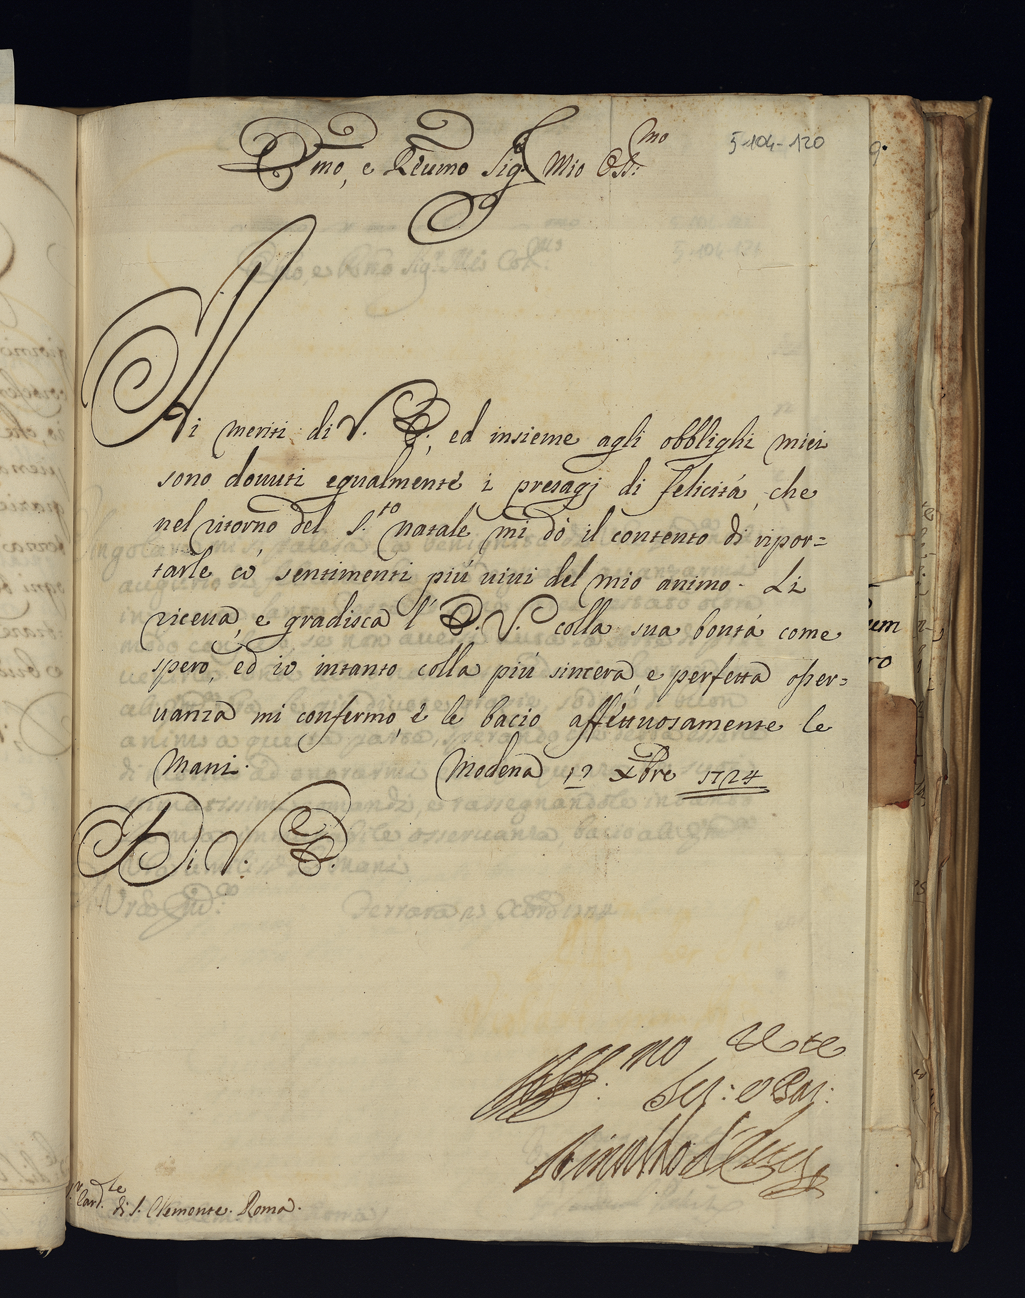 5-104-120
Emo, e Reumo Sig.r Mio Oss:mo
Ai meriti di V. E., ed insieme agli obblighi miei
sono douuti egualmente i presagj di felicità, che
nel ritorno del S.to natale mi dò il contento di ripor=
tarle cò sentimenti più uiui del mio animo. Li
riceua, e gradisca l'E. V. colla sua bontà come
spero, ed io intanto colla più sincera, e perfetta osser=
uanza mi confermo, e le bacio affettuosamente le
Mani. Modena 12 Xbre 1724
Di V. E.
Aff.mo
Ser: e Par:
Rinaldo d'Este
Card.le di S. Clemente. Roma.